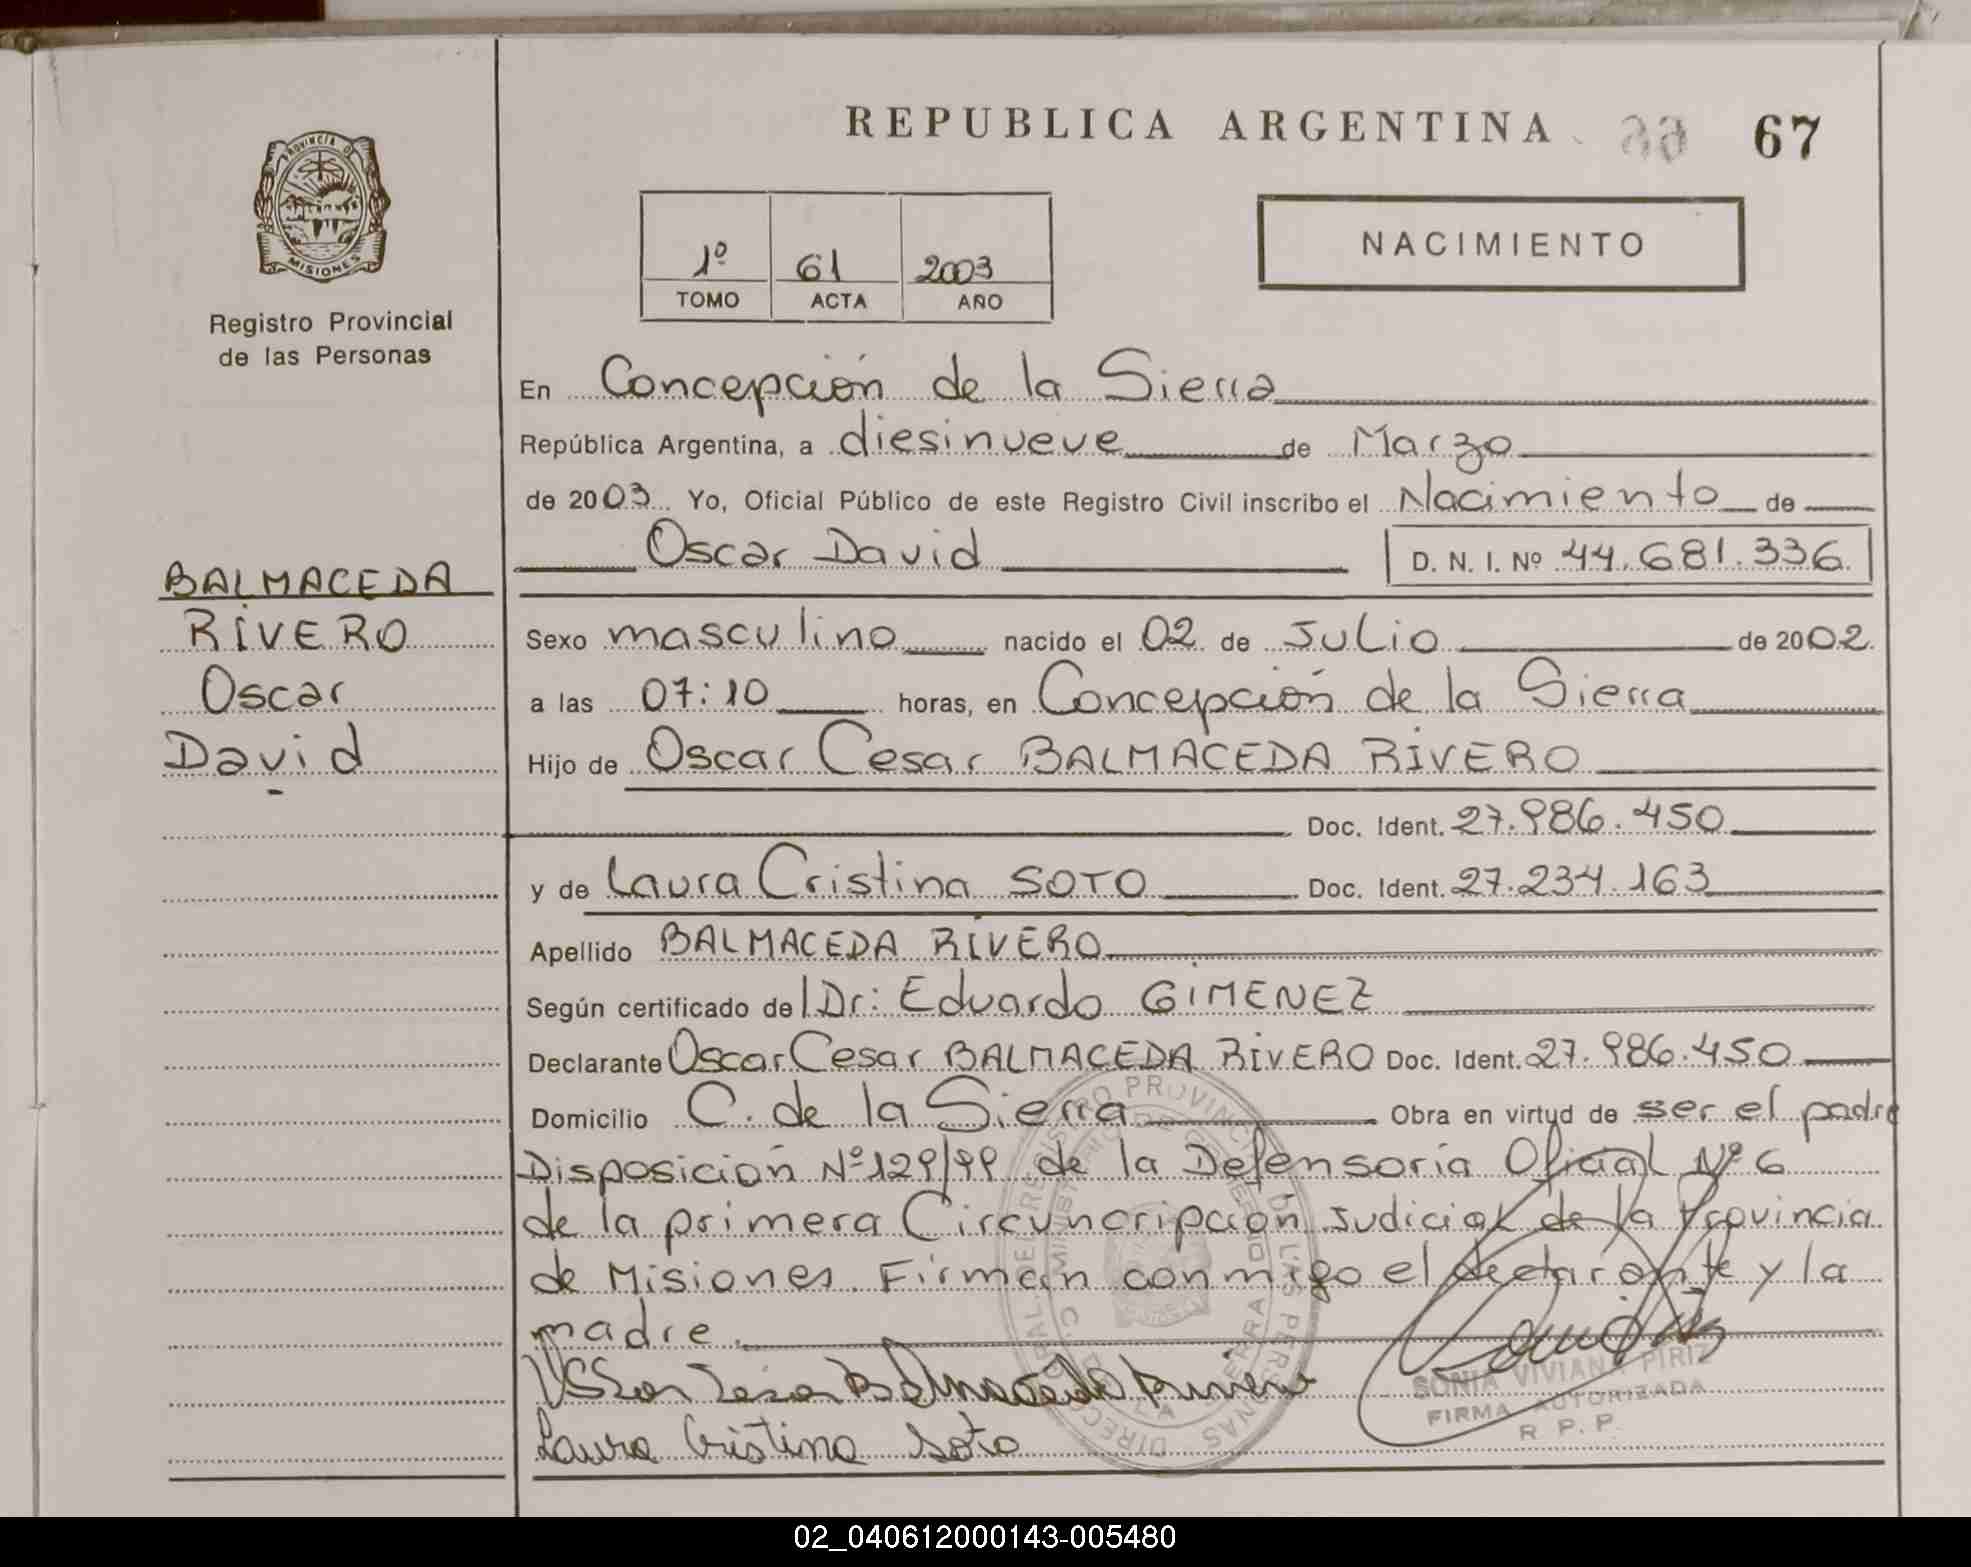 REPUBLICA ARGENTINA 66 67
PROVINCIA DE
MISIONES
Registro Provincial
de las Personas
1º 61 2003
TOMO ACTA AÑO
NACIMIENTO
En Concepción de la Sierra
República Argentina, a diesinueve de Marzo
de 2003 Yo, Oficial Público de este Registro Civil inscribo el Nacimiento de
Oscar David D. N. I. Nº 44.681.336
BALMACEDA
RIVERO
Oscar
David
Sexo masculino nacido el 02 de Julio de 2002
a las 07:10 horas, en Concepción de la Sierra
Hijo de Oscar Cesar BALMACEDA RIVERO
Doc. Ident. 27.986.450
y de Laura Cristina SOTO Doc. Ident. 27.234.163
Apellido BALMACEDA RIVERO
Según certificado del Dr: Eduardo GIMENEZ
Declarante Oscar Cesar BALMACEDA RIVERO Doc. Ident. 27.986.450
Domicilio C. de la Sierra Obra en virtud de ser el padre
Disposición Nº 129/99 de la Defensoría Oficial Nº 6
de la primera Circuncripción Judicial de la Provincia
de Misiones. Firman conmigo el declarante y la
madre.
Oscar Cesar Balmaceda Rivero
Laura Cristina Soto
SONIA VIVIANA PIRIZ
FIRMA AUTORIZADA
R. P. P.
02_040612000143-005480